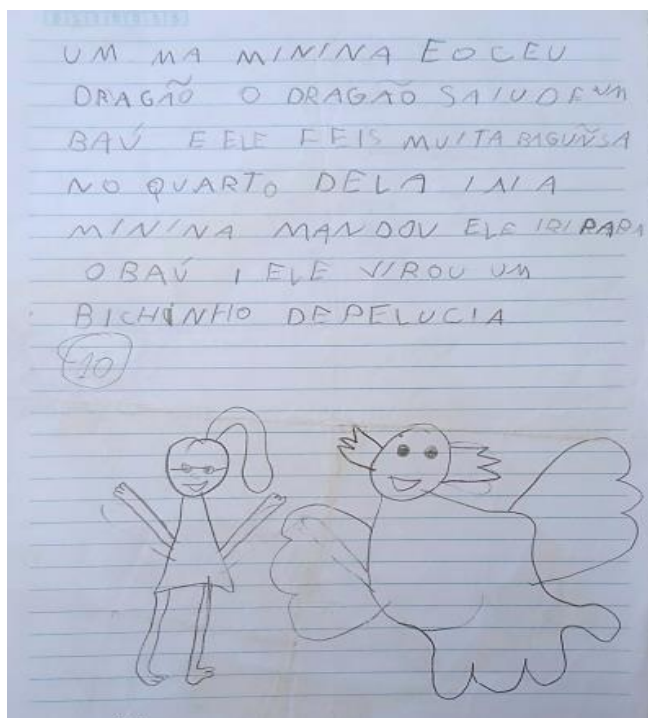 UM MA MININA EOCEU
DRAGÃO O DRAGÃO SAIUDEUM
BAÚ E ELE FEIS MUITA BAGUÑSA
NO QUARTO DELA IAIA
MININA MANDOU ELE IRIPARA
OBAÚ I ELE VIROU UM
BICHINHO DEPELUCIA
10